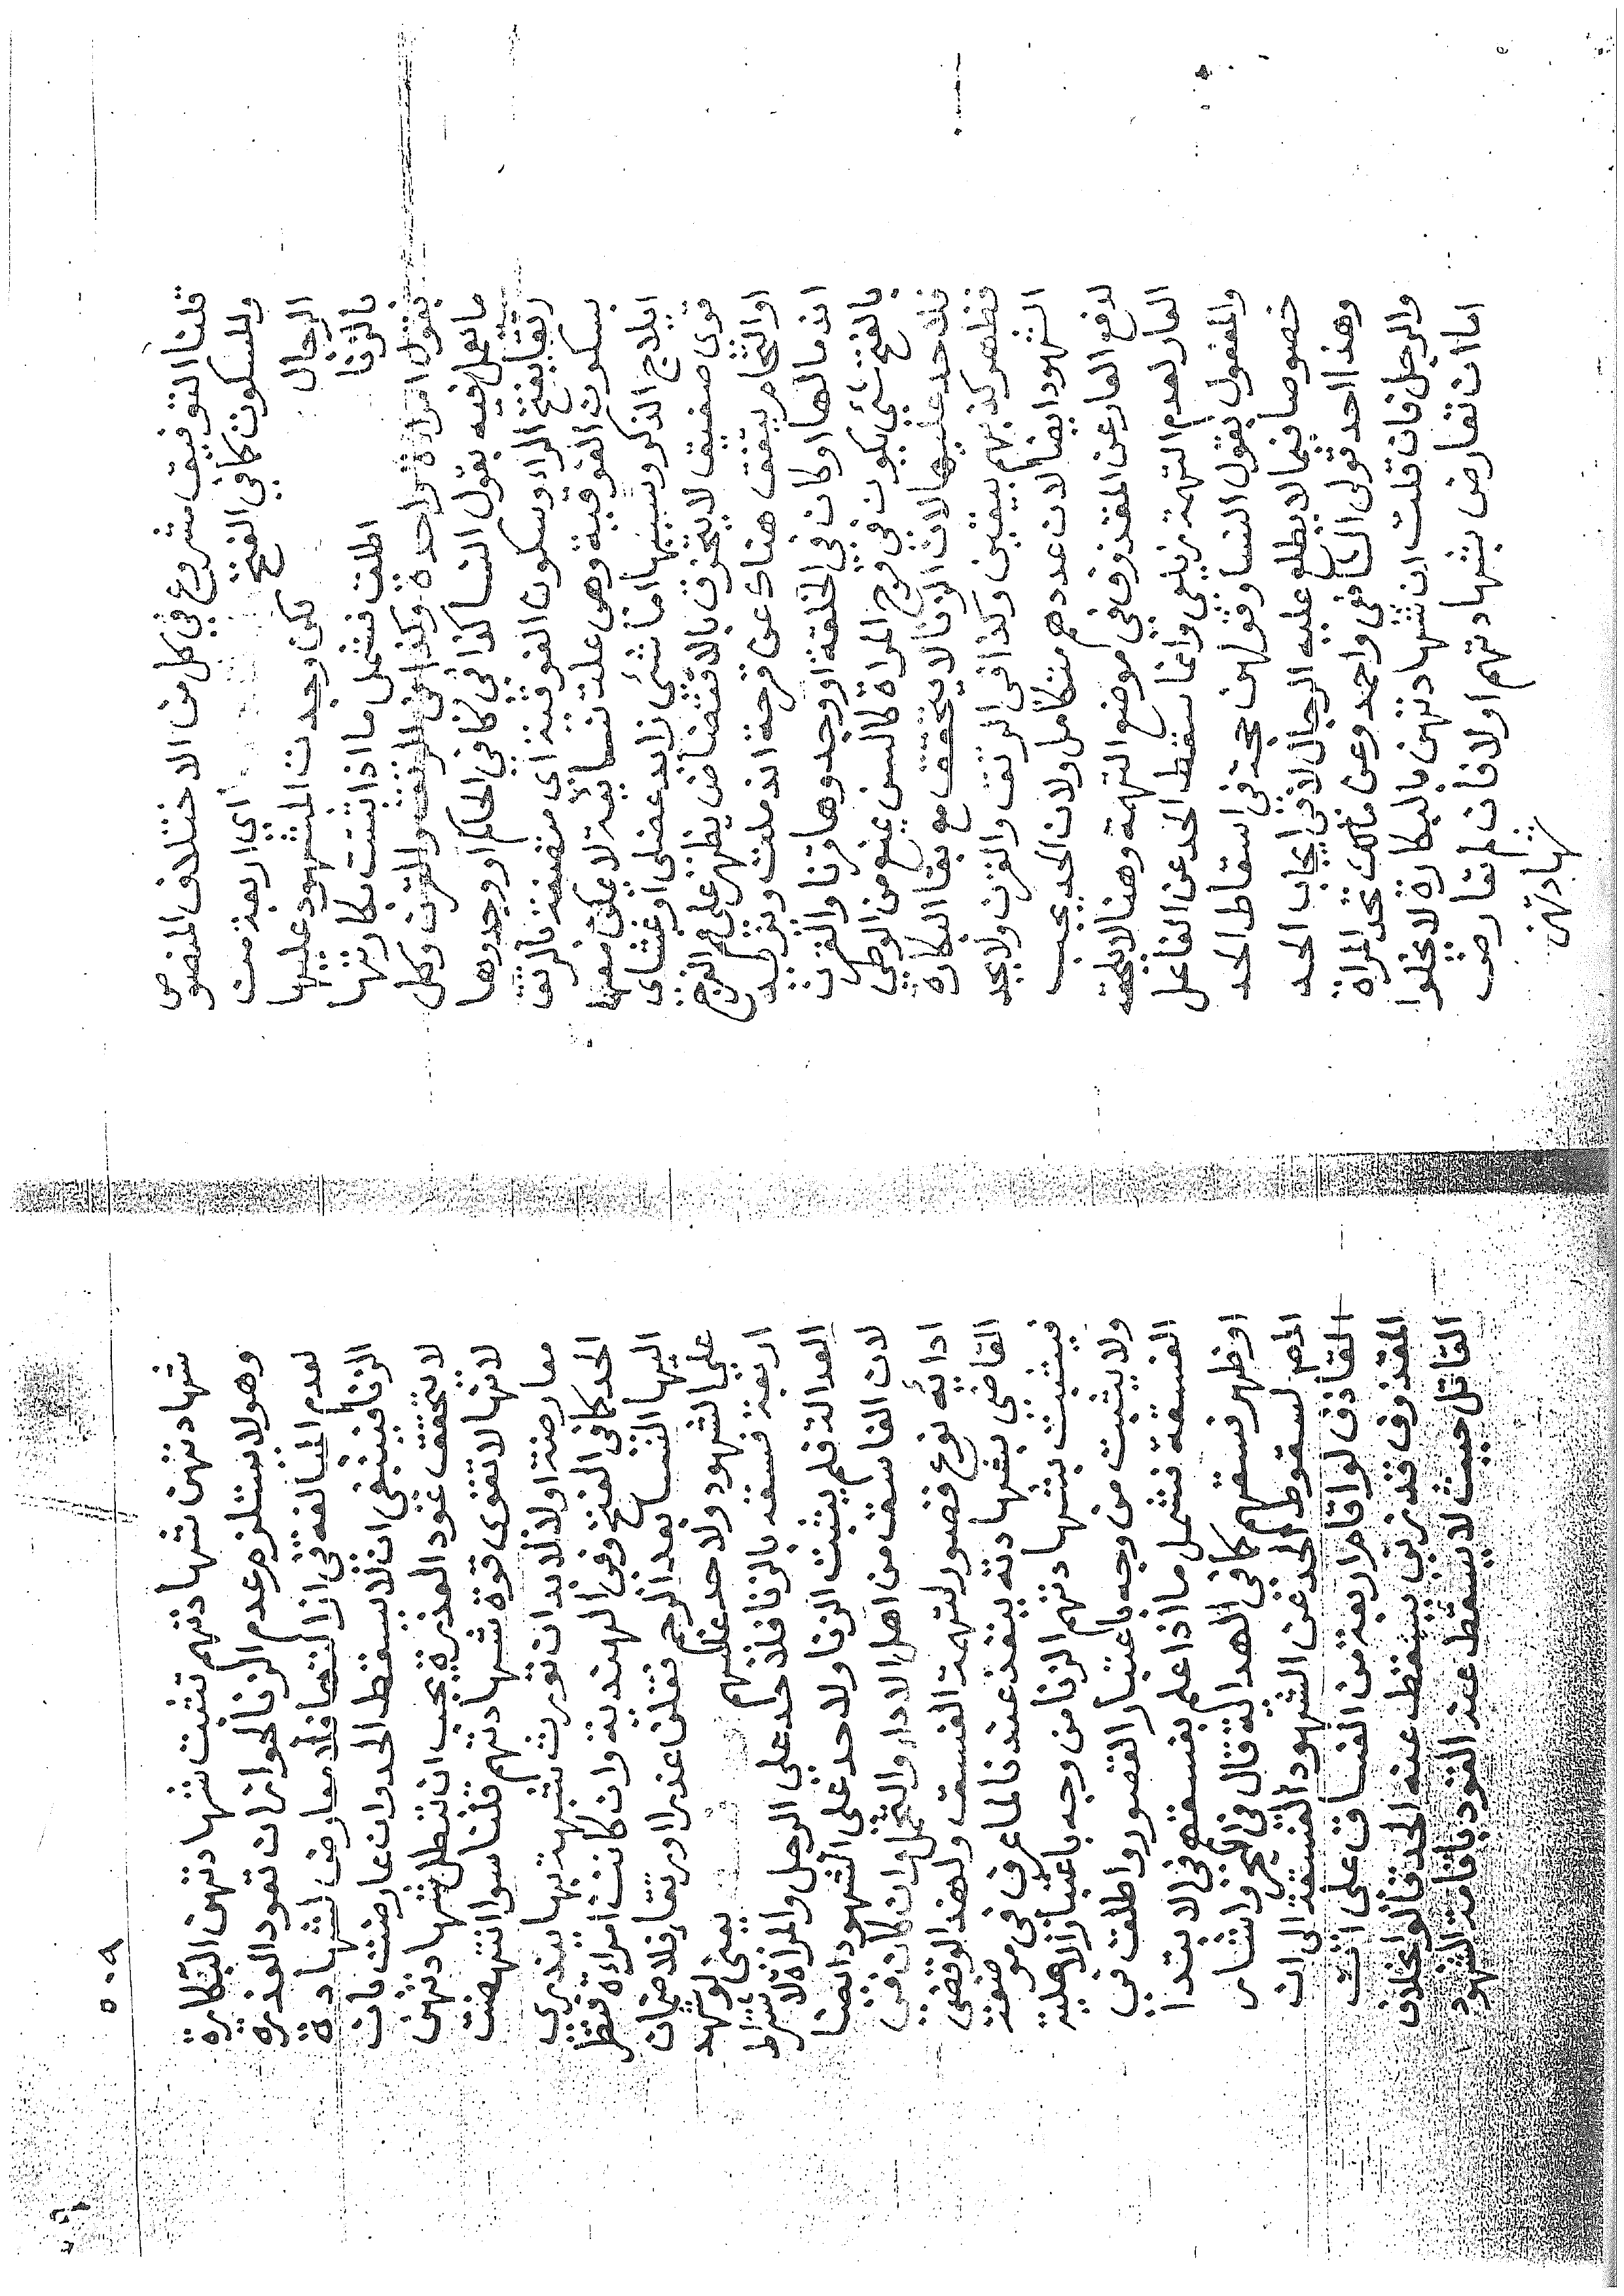 قلنا التوفيق مشروع في كل من الاختلاف المنصوص
والمسكوت كما في الفتح اي اربعة من
الرجال لكن وجدت المشهود عليها
بالزنا اطلق فشمل ما اذا ثبتت بكارتها
بقول امراة واحدة وكذا في الرتق والقرن وكل
ما يعمل فيه بقول النسا كذا في كافي الحاكم او وجدوها
رتقا بفتح الراء وسكون الفوقية اي متصفة بالرتق
بسكون الفوقية وهي علة نسايية لا يمكن معها
ايلاج الذكر وسببها اما شي زايد عضلي او غشاي
قوي صفيق لا يتخرق بالاقتضاض يظهر على فم الفرج
او التحام يتفق هناك عن قرحة اندملت وتولد
اندمالها او كان في الخلقة او وجدوها قرنا والقرن
بالفتح شي يكون في فرج المراة كالسن يمنع من الوطي
فلا حد عليهما لان الزنا لا يتحقق مع بقا البكارة
فظهر كذبهم بيقين وكذا في الرتق والقرن ولا يحد
الشهود ايضا لان عددهم متكامل ولان الحد يجب
لدفع العار عن المقذوف في موضع التهمة وهنا لا يلحقه
العار لعدم التهمة زيلعي وانما سقط الحد عن الفاعل
والمفعول بقول النسا وقولهن حجة في اسقاط الحد
خصوصا فيما لا يطلع عليه الرجال لا في ايجاب الحد
وهذا احد قولي الشافعي واحمد وعن مالك تحد المراة
والرجل فان قلت ان شهادتهن بالبكارة لا تخلوا
اما ان تعارض بشهادتهم او لا فان لم تعارض
شهادتهن
٥٠٩
شهادتهن شهادتهم تثبت شهادتهن البكارة
وهو لا يستلزم عدم الزنا لجواز ان تعود العذرة
لعدم المبالغة في ازالتها فلا معارض لشهادة
الزنا فينبغي ان لا يسقط الحد وان عارضت بان
لا يتحقق عود العذرة يجب ان تبطل شهادتهن
لانها لا تقوى قوة شهادتهم قلنا سوا انتهضت
معارضة او لا لا بد ان تورث شبهة بها يندري
الحد كما في الفتح وفي الهندية وان كانت امراة فنظر
اليها النسا بعد الرجم فقلن عذرا او رتقا فلا ضمان
على الشهود ولا حد عليهم يعني لو شهد
اربعة فسقة بالزنا فلا حد على الرجل والمراة لاشتراط
العدالة فلم يثبت الزنا ولا حد على الشهود ايضا
لان الفاسق من اهل الادا والتحمل وان كان في
ادائه نوع قصور لتهمة الفسق ولهذا لو قضى
القاضي بشهادته ينفذ عندنا لما عرف في موضعه
فيثبت بشهادتهم الزنا من وجه باعتبار الاهلية
ولا يثبت من وجه باعتبار القصور واطلق في
الفسقة فشمل ما اذا علم بفسقهم في الابتدا
او ظهر فسقهم كما في الهداية قال في البحر واشار
المص لسقوط الحد عن الشهود الفسقة الى ان
القاذف لو اقام اربعة من الفساق على ان
المقذوف قد زنى يسقط عنه الحد قالوا بخلاف
القاتل حيث لا يسقط عنه القود باقامة الشهود